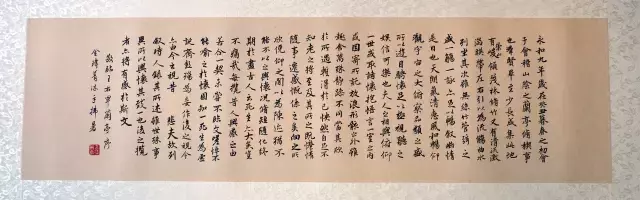 永和九年歲在癸丑暮春之初會
于會稽山陰之蘭亭脩稧事
也羣賢畢至少長咸集此地
有崇山峻領茂林脩竹又有清流激
湍暎帶左右引以為流觴曲水
列坐其次雖無絲竹管弦之
盛一觴一詠亦足以暢敘幽情
是日也天朗氣清惠風和暢仰
觀宇宙之大俯察品類之盛
所以遊目騁懷足以極視聽之
娛信可樂也夫人之相與俯仰
一世或取諸懷抱悟言一室之內
或因寄所託放浪形骸之外雖
趣舍萬殊靜躁不同當其欣
於所遇暫得於己快然自足不
知老之將至及其所之既惓情
隨事遷感慨係之矣向之所
欣俛仰之閒以為陳迹猶不
能不以之興懷況脩短隨化終
期於盡古人云死生亦大矣豈
不痛哉每攬昔人興感之由
若合一契未嘗不臨文嗟悼不
能喻之於懷固知一死生為虛
誕齊彭殤為妄作後之視今
亦由今之視昔 悲夫故列
敘時人錄其所述雖世殊事
異所以興懷其致一也後之攬
者亦將有感於斯文
敬臨王右軍蘭亭序